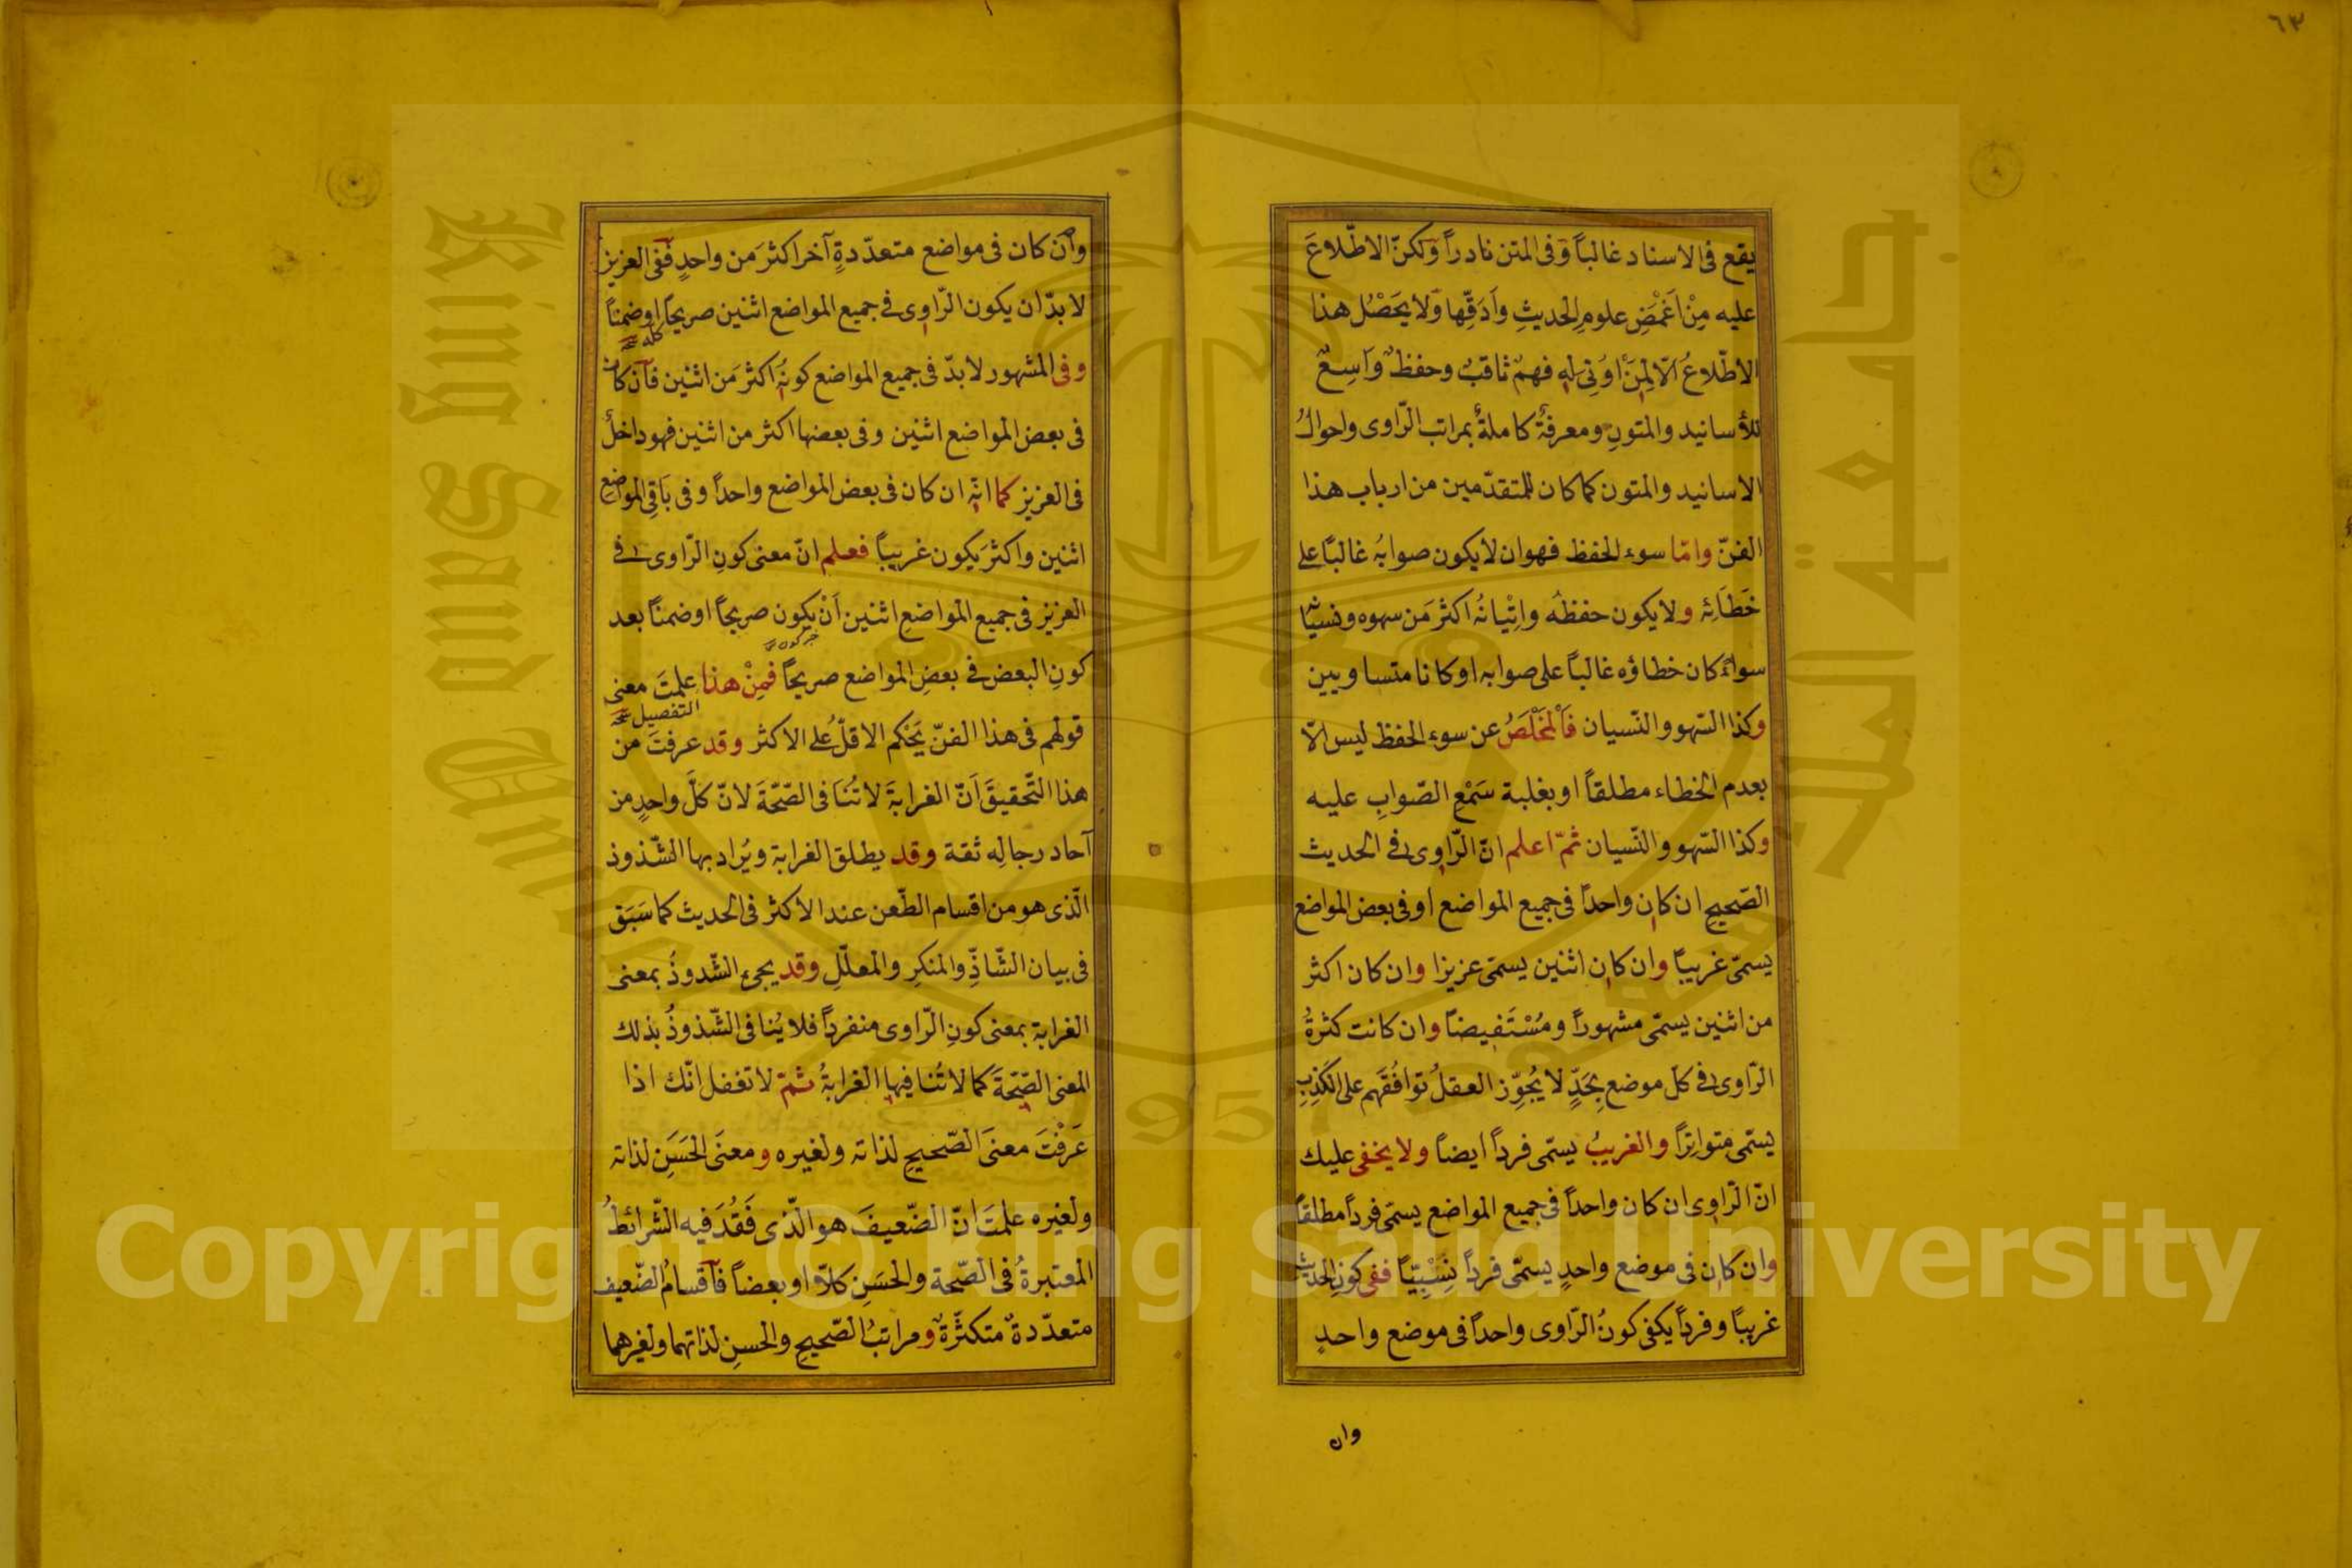 ٦٣
يقع فى الاسناد غالباً وَفى المتن نادراً وَلكنّ الاطّلاعَ
عليه مِنْ اَغْمَضِ علومِ الحديثِ واَدَقِّها وَلا يَحَصْل هذا
الاطّلاعُ الّا لِمَنْ اوُتِىَ له فهمٌ ثاقبٌ وحفظٌ وَاَسِعٌ
للأسانيد والمتونِ ومعرفةٌ كاملةٌ بمراتب الرّاوى واحوالُ
الاسانيد والمتون كما كان للمتقدّمين من ارباب هذا
الفنّ وامّا سوء الحفظ فهو ان لا يكون صوابُه غالباً على
خَطَائِه ولا يكون حفظُه واِتْيانُه اكثرَ مَن سهوه ونسيا
سواءً كان خطاؤه غالباً على صوابه او كانا متساويين
وكذا السّهو والنّسيان فَالْمَخْلَصُ عن سوء الحفظ ليس الّا
بعدم الخطاء مطلقاً او بغلبة سَمْعِ الصّوابِ عليه
وكذا السّهو والنّسيان ثمّ اعلم انّ الرّاوى فى الحديث
الصّحيحِ ان كان واحداً فى جميع المواضع او فى بعض المواضع
يسمّى غريباً وان كان اثنين يسمّى عزيزا وان كان اكثر
من اثنين يسمّى مشهوراً ومُسْتَفيضاً وان كانت كثرةُ
الرّاوى فى كلّ موضع بِحَدٍّ لا يُجوِّز العقلُ توافُقَهم على الكَذِبِ
يسمّى متواتِراً والغريبُ يسمّى فرداً ايضاً ولا يخفى عليك
انّ الرّاوى ان كان واحداً فى جميع المواضع يسمّى فرداً مطلقاً
وان كان فى موضع واحدٍ يسمّى فرداً نِسْبِيّاً ففى كونِ الحديث
غريباً وفرداً يكفى كونُ الرّاوى واحداً فى موضع واحدٍ
وان
وان كان فى مواضع متعدّدةٍ آخر اكثرَ مَن واحدٍ فَفى العزيز
لا بدّ ان يكون الرّاوى فى جميع المواضع اثنين صريحاً او ضمناً
وفى المشهور لا بدّ فى جميع المواضع كونُه اكثرَ مَن اثنين فاَن كان
فى بعض المواضع اثنين وفى بعضها اكثر من اثنين فهو داخلٌ
فى العزيز كما انّه ان كان فى بعض المواضع واحداً وفى باَقِى المواضع
اثنين واكثرَ يكون غريباً فعلم انّ معنى كونِ الرّاوى فى
العزيز فى جميع المواضعِ اثنين اَنْ يكون صريحاً او ضمناً بعد
كونِ البعض فى بعضِ المواضع صريحاً فمِنْ هذا علمتَ معنى
التفصيل
قولهم فى هذا الفنّ يَحْكم الاقلُّ على الاكثر وقد عرفتَ من
هذا التّحقيقَ اَنّ الغرابةَ لا تُنَافى الصّحّةَ لانّ كلَّ واحدٍ من
آحاد رجالِه ثقة وقد يطلق الغرابة ويُراد بها الشّذوذ
الّذى هو من اقسام الطّعن عند الاكثر فى الحديث كما سَبَق
فى بيان الشّاذِّ والمنكرِ والمعلّلِ وقد يجىء الشّدوذُ بمعنى
الغرابة بمعنى كونِ الرّاوى منفرداً فلا يُنافى الشّذوذُ بذلك
المعنى الصّحّةَ كما لا تُنافيها الغرابةُ ثمّ لا تغفل انّك اذا
عَرَفْتَ معنَى الصّحيحِ لذاته ولغيره ومعنَى الحَسَنِ لذاته
ولغيره علمتَ انّ الضّعيفَ هو الّذى فَقُدَ فيه الشّرائطُ
المعتبرةُ فى الصّحة والحَسَنِ كلاّ او بعضاً فاَقسامُ الضّعيف
متعدّدةٌ متكثّرةٌ ومراتبُ الصّحيحِ والحسنِ لذاتهما ولغيرهما